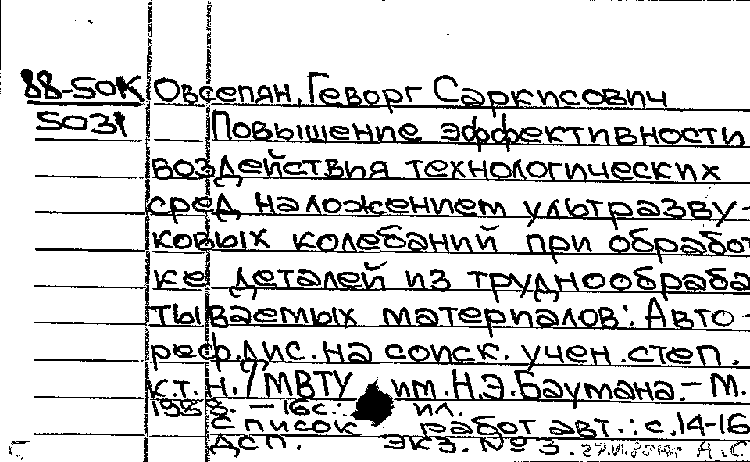 88-50К Овсепян, Геворг Саркисович
5031 Повышение эффективности
воздействия технологических
сред наложением ультразву-
ковых колебаний при обработ
ке деталей из труднообраба
тываемых материалов: Авто-
реф. дис. на соиск. учен. степ.
к.т.н. / МВТУ им. Н.Э. Баумана. - М.
- 16 с.: ил.
Список работ авт.: с. 14-16
ДСП. экз. № 3.